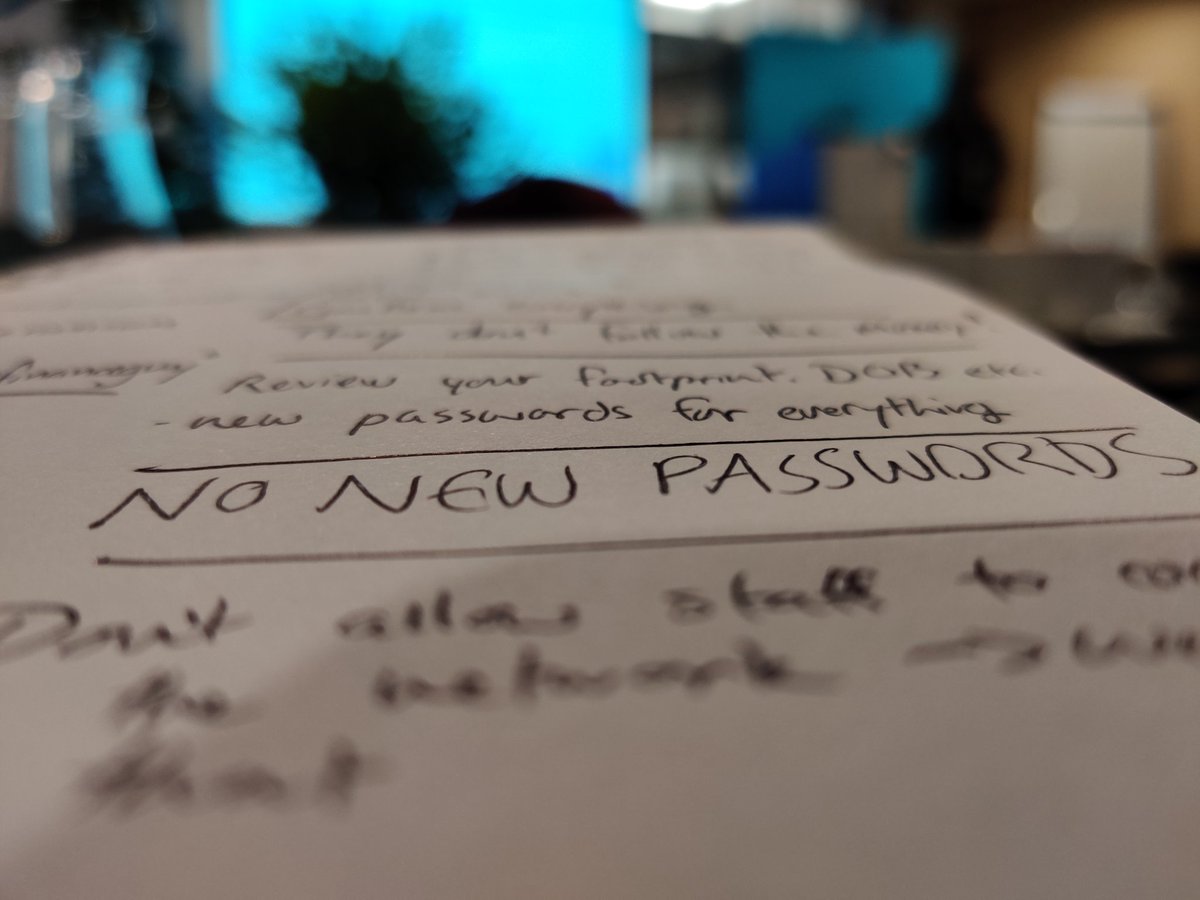 everything
They don't follow the money".
Review your footprint. DOB etc.
- new passwords for everything
NO NEW PASSWORDS
Don't allow staff to
the network →
that